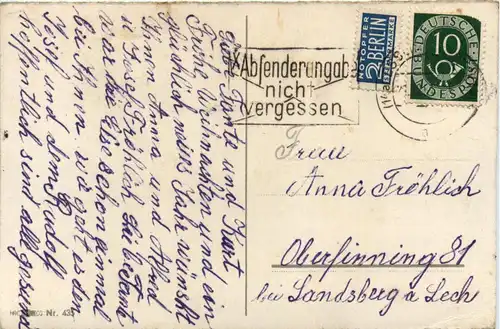 Liebe Tante und Kurt
Frohe Weihnachten und ein
glückliches neues Jahr wünscht
Ihnen Anna und
u. Josef Fröhlich die bekannt
war die Else schon einmal
bei Ihnen wie geht es dem
Josef und dem Rudolf
hoffentlich sind alle gesund
Abſenderangabe
nicht
vergessen
NOTOPFER
2 BERLIN
STEUERMARKE
DEUTSCHE
BUNDESPOST
10
Frau
Anna Fröhlich
Oberfinning 81
bei Landsberg a Lech
Nr. 435